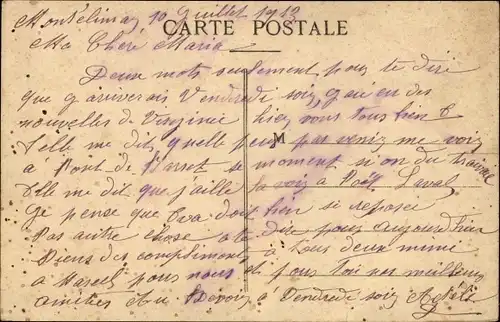 Montélimar 10 Juillet 1913
CARTE POSTALE
Ma Chère Maria
Deux mots seulement pour te dire
que j'arriverais Vendredi soir, j'ai eu des
nouvelles de Virginie hier, vous tous bien
elle me dit quelle peut pas venir me voir
M
à Pont de Barret se moment si on du travail
elle me dit que j'aille la voir à Poët Laval
je pense que doit bien se reposer
Pas autre chose a te dire pour aujourd'hier
Biens des compliments à tous deux même
a Marcel pour nous et pour toi nos meilleurs
amitiés Au Revoir à Vendredi soir